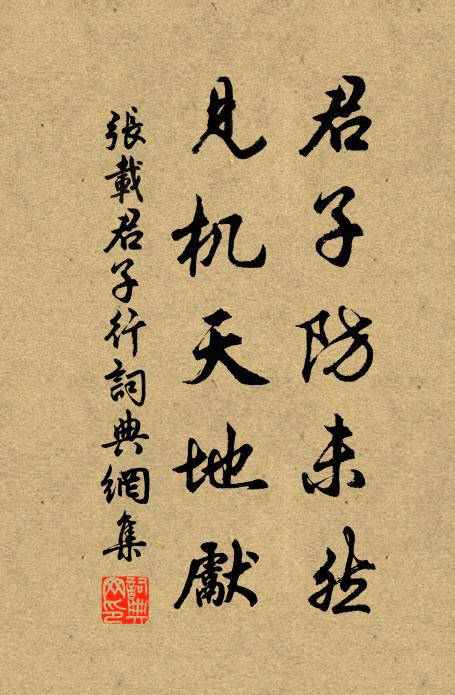 君子防未然
見机天地獻
張載君子行詞典網集
詞典网印